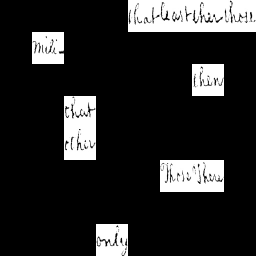 that least their those
mili-
then
that
their
Those There
only